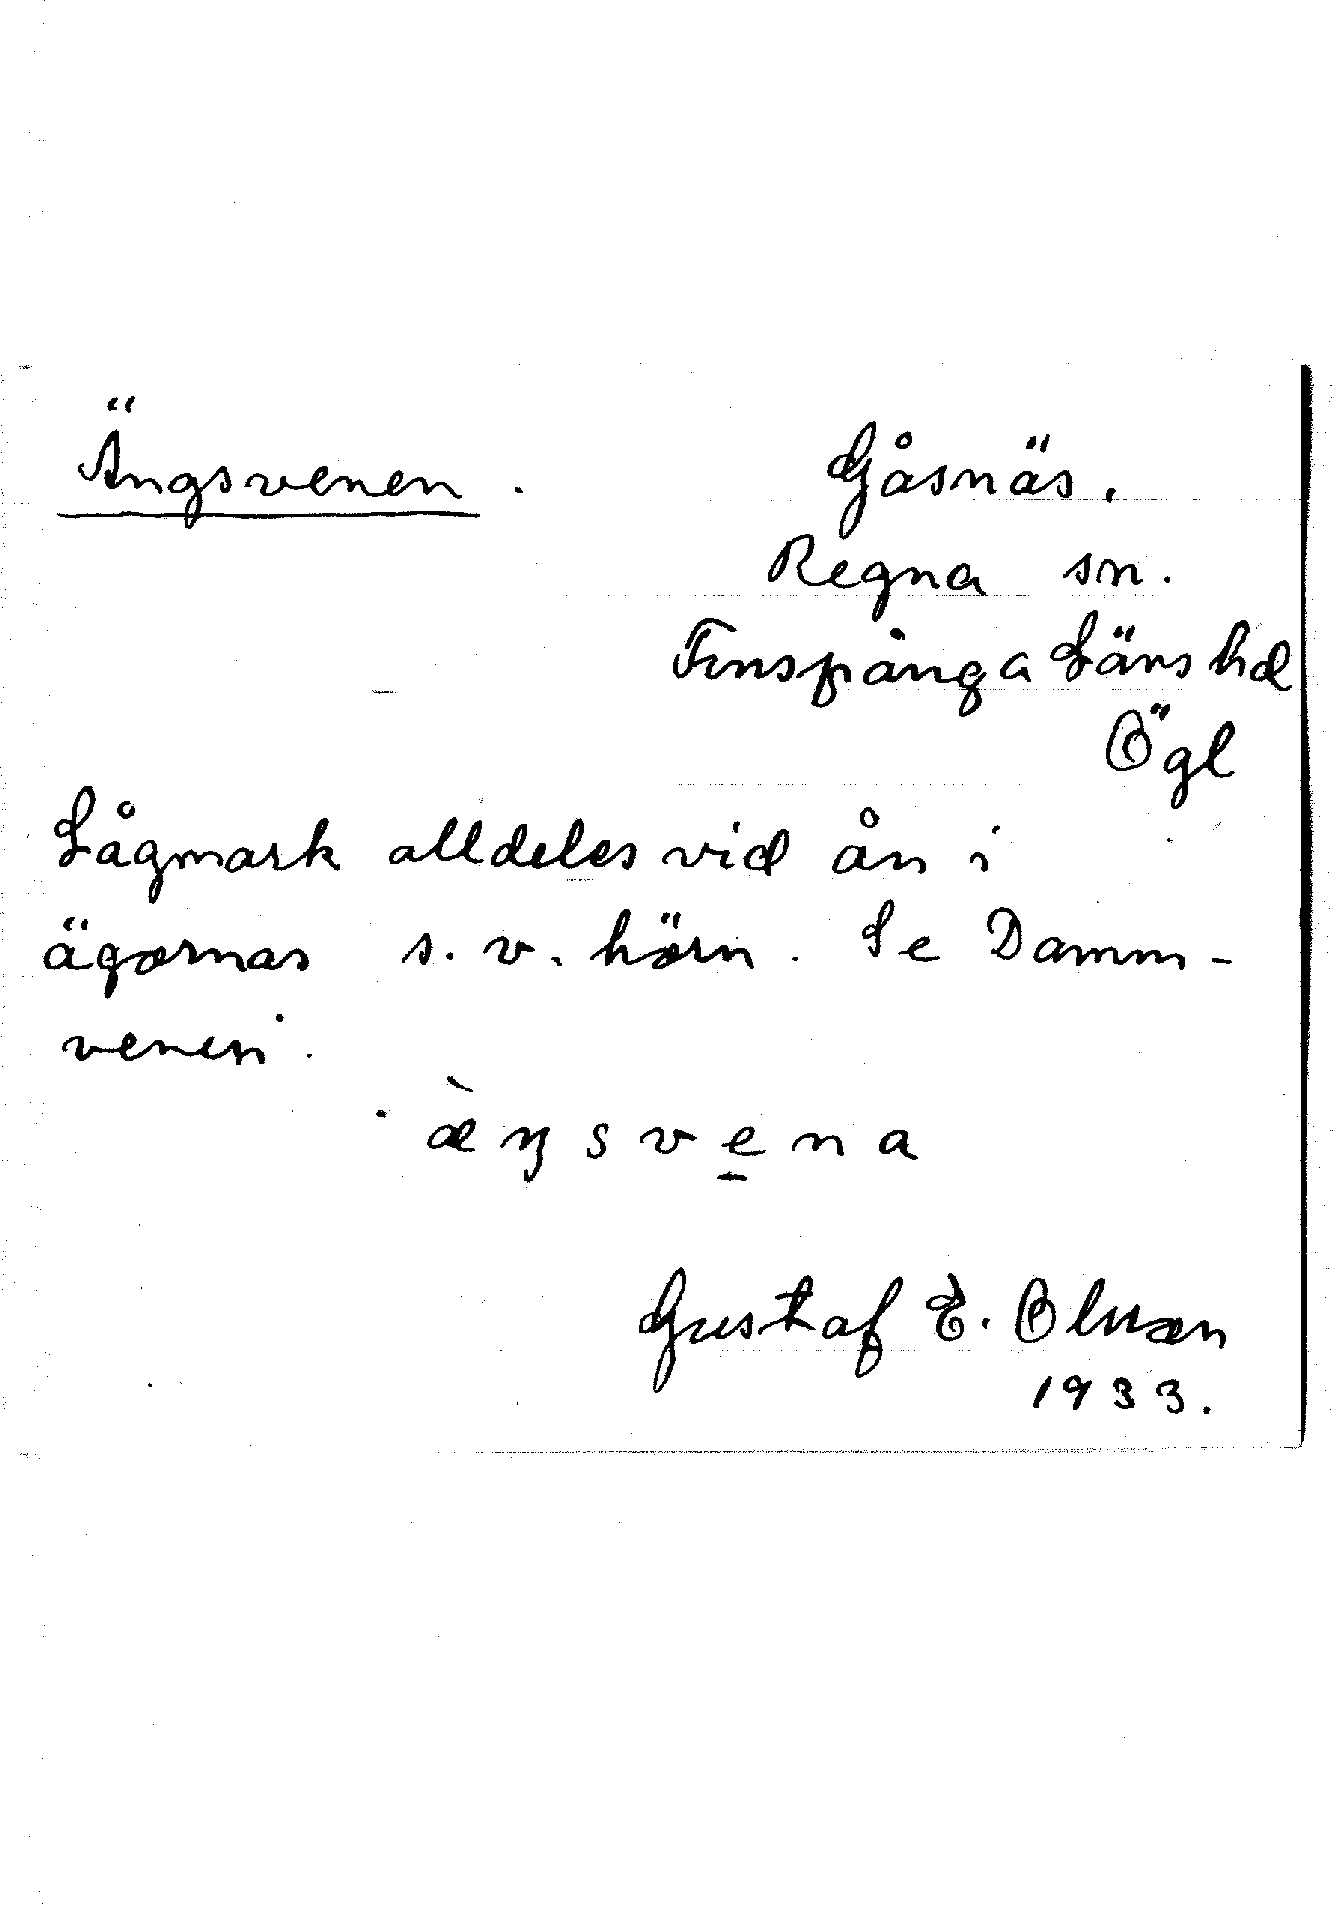 Ängsvenen.
Gåsnäs.
Regna sn.
Finspånga Läns hd
Ögl
Lågmark alldeles vid ån i
ägornas s. v. hörn. Se Damm-
venen.
æ̀ŋsve̱na
Gustaf E. Olsson
1933.